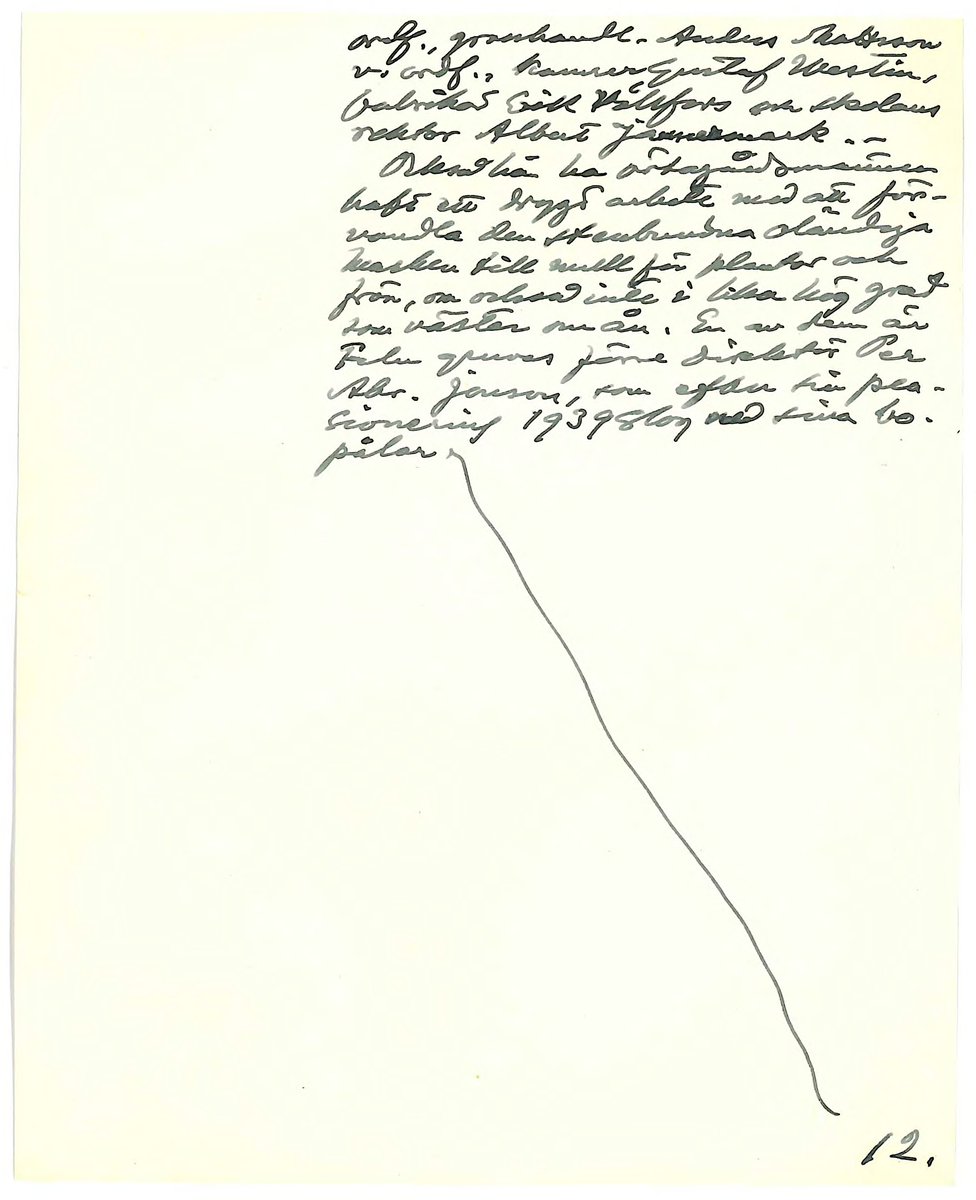 ordf., grosshandl. Anders Mattsson
v. ordf., kamrer Gustaf Westin,
fabrikör Erik Hållfors och skolans
rektor Albert Jannermark. -
Också här ha örtagårdsmannen
haft ett drygt arbete med att för-
vandla den stenbundna oländiga
marken till mull för plantor och
frön, om också inte i lika hög grad
som väster om ån. En av dem är
Falu gruvas förre direktör Per
Abr. Jonson, som efter sin pen-
sionering 1939 slog ned sina bo-
pålar
12.